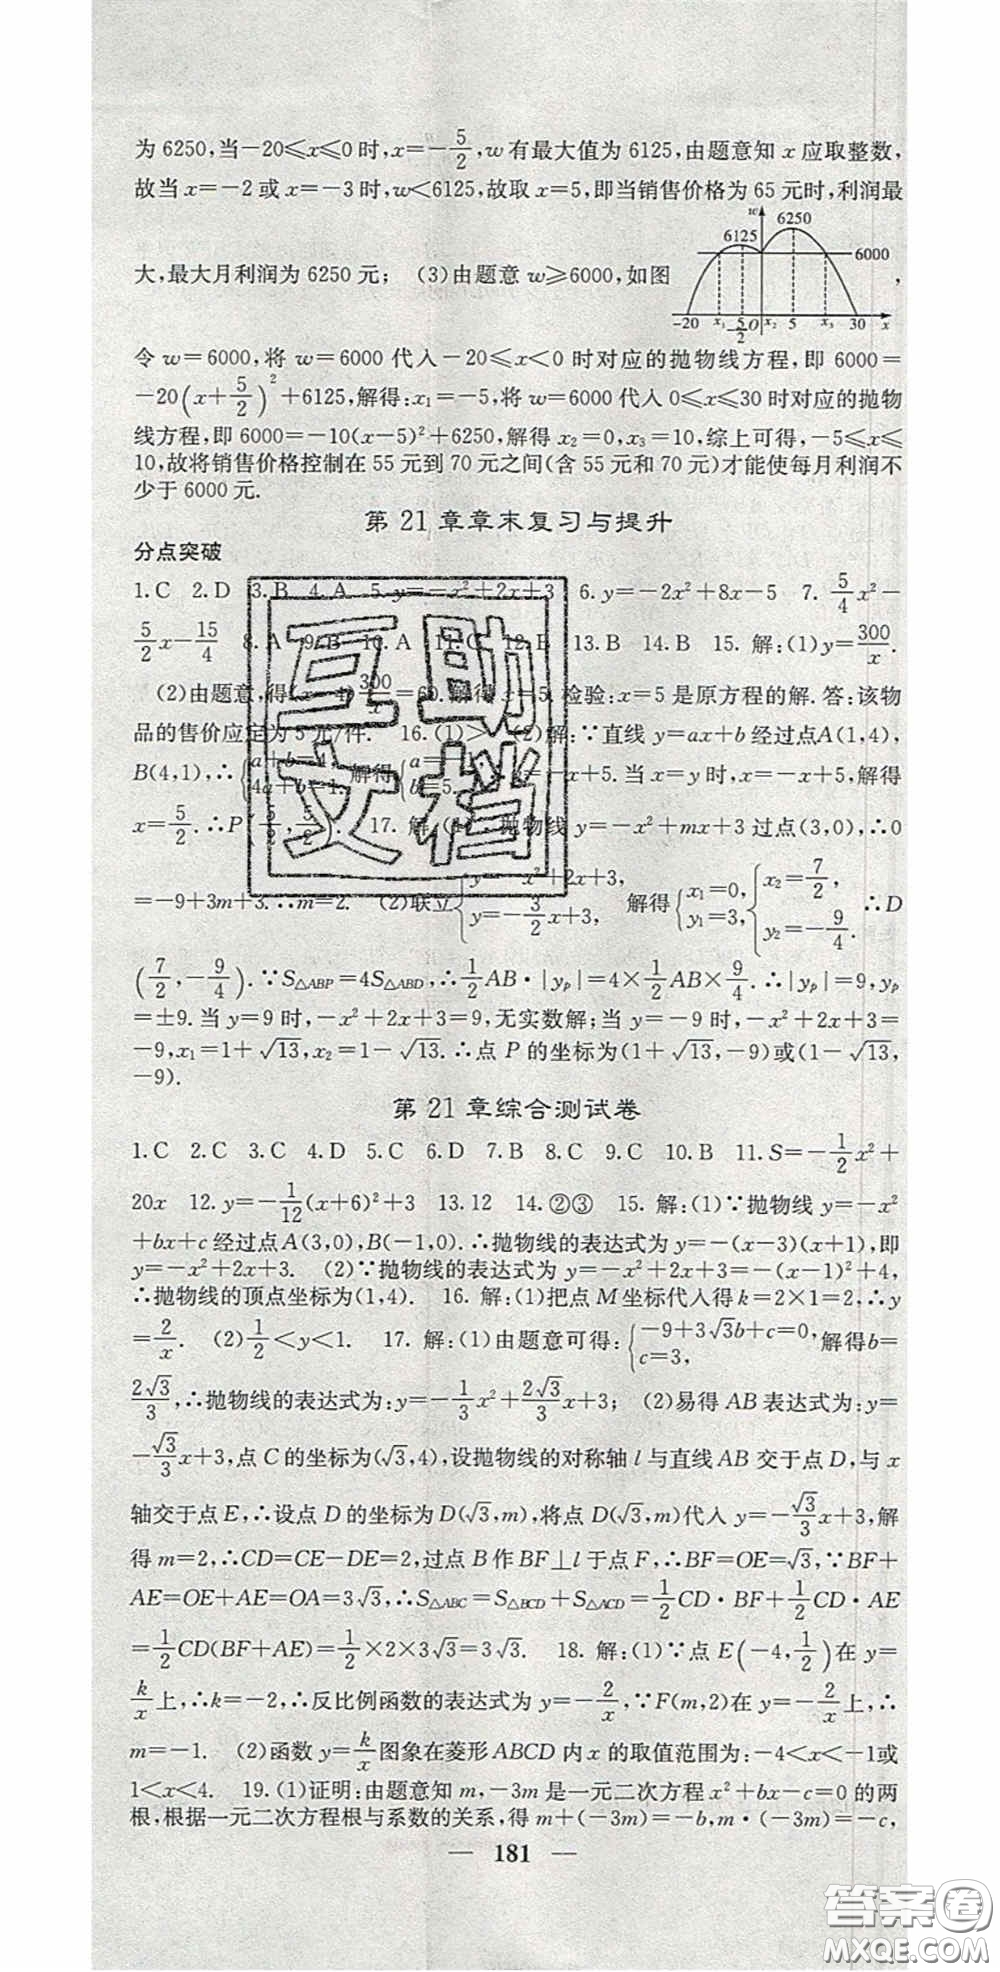 为 6250,当-20≤x≤0 时,x=-5/2,w 有最大值为 6125,由题意知 x 应取整数,
故当 x=-2 或 x=-3 时,w<6125,故取 x=5,即当销售价格为 65 元时,利润最
大,最大月利润为 6250 元; (3)由题意 w≥6000,如图
w 6250 6125 6000 -20 x₁ -5/2 O x₂ 5 x₃ 30 x ,
令 w=6000,将 w=6000 代入-20≤x<0 时对应的抛物线方程,即 6000=
-20(x+5/2)²+6125,解得:x₁=-5,将 w=6000 代入 0≤x≤30 时对应的抛物
线方程,即 6000=-10(x-5)²+6250,解得 x₂=0,x₃=10,综上可得,-5≤x≤
10,故将销售价格控制在 55 元到 70 元之间(含 55 元和 70 元)才能使每月利润不
少于 6000 元.
第 21 章章末复习与提升
分点突破
1.C 2.D 3.B 4.A 5.y=-x²+2x+3 6.y=-2x²+8x-5 7.5/4x²-
5/2x-15/4 8.A 9.B 10.A 11.C 12.B 13.B 14.B 15.解:(1)y=300/x.
(2)由题意,得(x-4)300/x=60.解得 x=5.检验:x=5 是原方程的解.答:该物
品的售价应定为 5 元/件. 16.(1)> (2)解:∵直线 y=ax+b 经过点A(1,4),
B(4,1),∴{a+b=4, 4a+b=1. 解得{a=-1, b=5. y=-x+5.当 x=y 时,x=-x+5,解得
x=5/2.∴P(5/2,5/2). 17.解:(1)∵抛物线 y=-x²+mx+3 过点(3,0),∴0
=-9+3m+3.∴m=2. (2)联立{y=-x²+2x+3, y=-3/2x+3, 解得{x₁=0, y₁=3, {x₂=7/2, y₂=-9/4. ∴D
(7/2,-9/4).∵S△ABP=4S△ABD,∴1/2AB·|yₚ|=4×1/2AB×9/4.∴|yₚ|=9,yₚ
=±9.当 y=9 时,-x²+2x+3=9,无实数解;当 y=-9 时,-x²+2x+3=
-9,x₁=1+√13,x₂=1-√13.∴点 P 的坐标为(1+√13,-9)或(1-√13,
-9).
第 21 章综合测试卷
1.C 2.C 3.C 4.D 5.C 6.D 7.B 8.C 9.C 10.B 11.S=-1/2x²+
20x 12.y=-1/12(x+6)²+3 13.12 14.②③ 15.解:(1)∵抛物线 y=-x²
+bx+c 经过点A(3,0),B(-1,0).∴抛物线的表达式为 y=-(x-3)(x+1),即
y=-x²+2x+3. (2)∵抛物线的表达式为 y=-x²+2x+3=-(x-1)²+4,
∴抛物线的顶点坐标为(1,4). 16.解:(1)把点 M 坐标代入得 k=2×1=2,∴y
=2/x. (2)1/2<y<1. 17.解:(1)由题意可得:{-9+3√3b+c=0, c=3, 解得b=
2√3/3,∴抛物线的表达式为:y=-1/3x²+2√3/3x+3; (2)易得 AB 表达式为:y=
-√3/3x+3,点 C 的坐标为(√3,4),设抛物线的对称轴 l 与直线 AB 交于点 D,与 x
轴交于点 E,∴设点 D 的坐标为 D(√3,m),将点 D(√3,m)代入 y=-√3/3x+3,解
得 m=2,∴CD=CE-DE=2,过点 B 作 BF⊥l 于点 F,∴BF=OE=√3,∵BF+
AE=OE+AE=OA=3√3,∴S△ABC=S△BCD+S△ACD=1/2CD·BF+1/2CD·AE
=1/2CD(BF+AE)=1/2×2×3√3=3√3. 18.解:(1)∵点 E(-4,1/2)在 y=
k/x上,∴k=-2,∴反比例函数的表达式为 y=-2/x,∵F(m,2)在 y=-2/x上,∴
m=-1. (2)函数 y=k/x图象在菱形 ABCD 内 x 的取值范围为:-4<x<-1或
1<x<4. 19.(1)证明:由题意知 m,-3m 是一元二次方程 x²+bx-c=0 的两
根,根据一元二次方程根与系数的关系,得 m+(-3m)=-b,m·(-3m)=-c,
— 181 —
互助
文档
答案圈
MXQE.COM